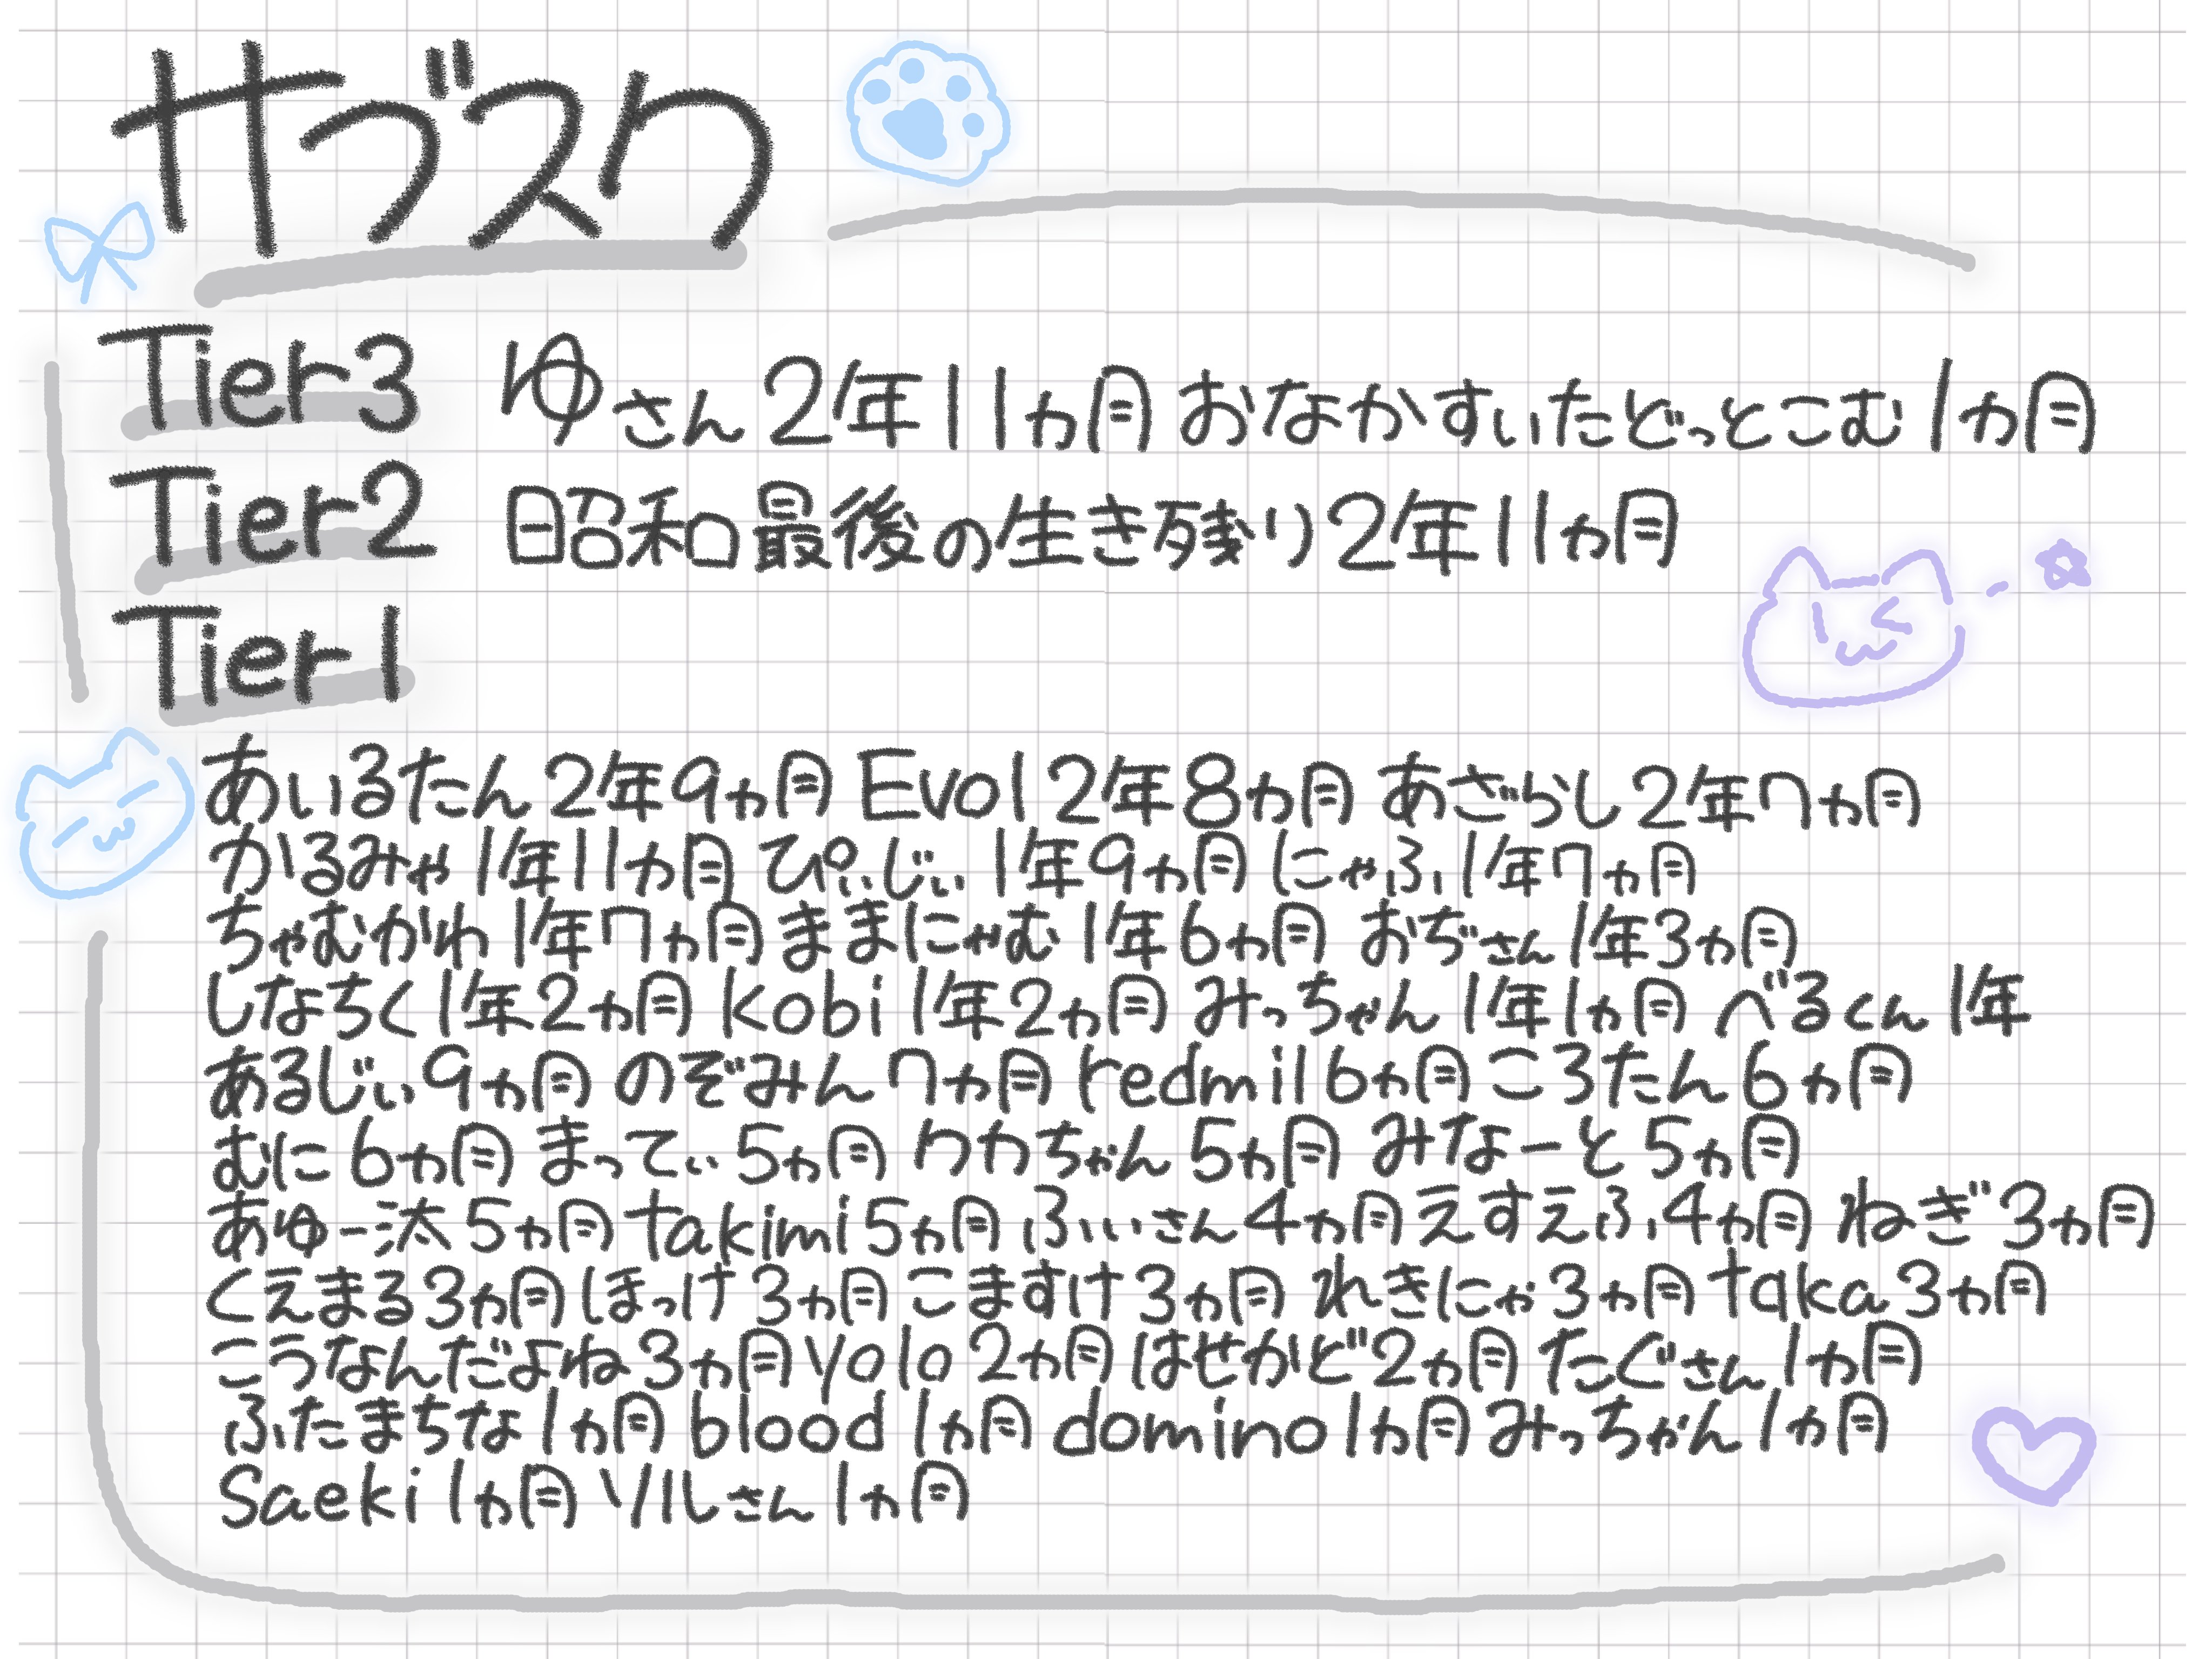 サブスク
Tier3 ゆさん 2年11ヵ月 おなかすいたどっとこむ 1ヵ月
Tier2 昭和最後の生き残り 2年11ヵ月
Tier1
あいるたん 2年9ヵ月 Evol 2年8ヵ月 あざらし 2年7ヵ月
かるみゃ 1年11ヵ月 ぴぃじぃ 1年9ヵ月 にゃふ 1年7ヵ月
ちゃむがわ 1年7ヵ月 ままにゃむ 1年6ヵ月 おぢさん 1年3ヵ月
しなちく 1年2ヵ月 kobi 1年2ヵ月 みっちゃん 1年1ヵ月 べるくん 1年
あるじぃ 9ヵ月 のぞみん 7ヵ月 redmil 6ヵ月 ころたん 6ヵ月
むに 6ヵ月 まってぃ 5ヵ月 わかちゃん 5ヵ月 みなーと 5ヵ月
あゆー汰 5ヵ月 takimi 5ヵ月 ふぃさん 4ヵ月 えすえふ 4ヵ月 ねぎ 3ヵ月
くえまる 3ヵ月 ほっけ 3ヵ月 こますけ 3ヵ月 れきにゃ 3ヵ月 taka 3ヵ月
こうなんだよね 3ヵ月 yolo 2ヵ月 はせかど 2ヵ月 たぐさん 1ヵ月
ふたまちな 1ヵ月 blood 1ヵ月 domino 1ヵ月 みっちゃん 1ヵ月
Saeki 1ヵ月 ソルさん 1ヵ月